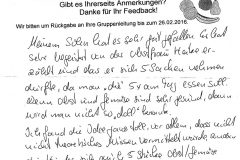 Gibt es Ihrerseits Anmerkungen?
Danke für Ihr Feedback!
Wir bitten um Rückgabe an Ihre Gruppenleitung bis zum 26.02.2016.
Meinem Sohn hat es sehr gut gefallen. Er hat
sehr begeistert von der
erzählt und das er sich 5 Sachen nehmen
durfte, da man, die 5 am Tag essen soll
denn Obst und Gemüse sind sehr gesund, dann
wird man nicht so doll krank.
Ich fand die Idee ganz toll, vor allem, dass nicht
nicht theoretisches Wissen vermittelt wurde, sondern
5 Stücke Obst/Gemüse